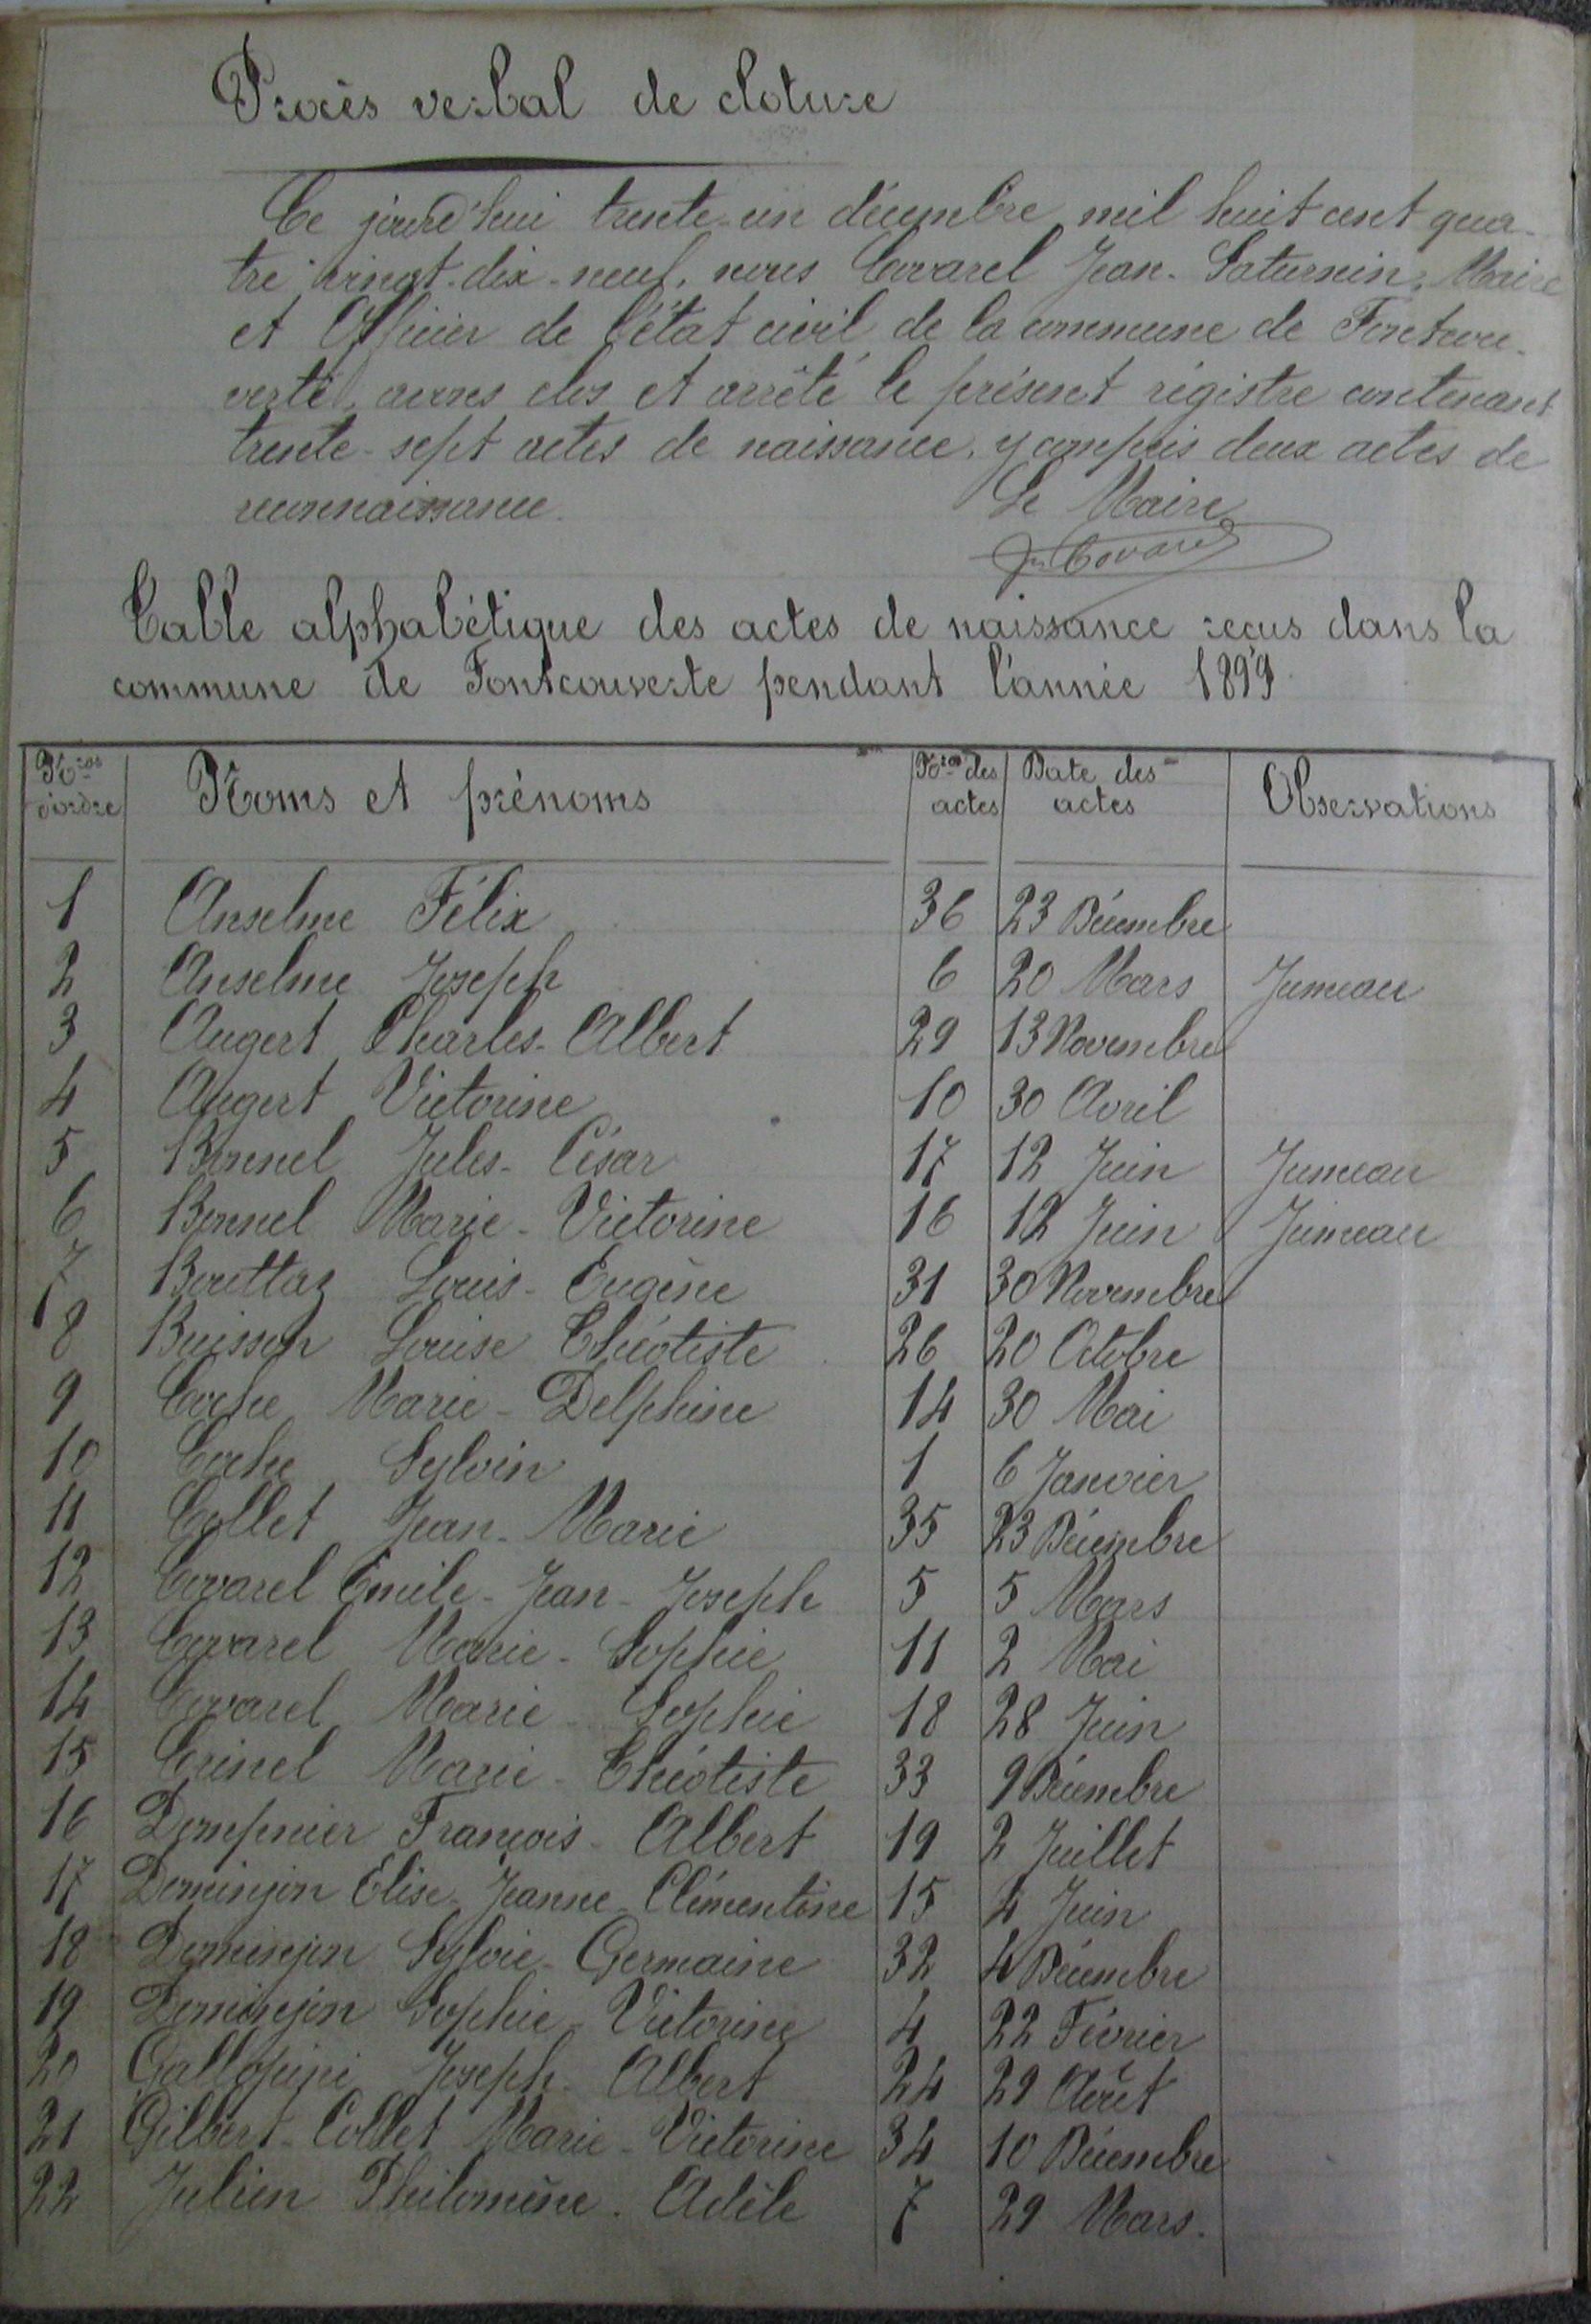 Procès verbal de cloture
Ce jourd'hui trente-un décembre mil huit cent qua-
tre vingt-dix-neuf, nous Covarel Jean-Saturnin, Maire
et Officier de l'état civil de la commune de Fontcou-
verte, avons clos et arrêté le présent régistre contenant
trente-sept actes de naissance, y compris deux actes de
reconnaissance.
Le Maire
Jn Covarel
Table alphabétique des actes de naissance reçus dans la
commune de Fontcouverte pendant l'année 1899
Nros d'ordre Noms et prénoms Nros des actes Date des actes Observations
1 Anselme Félix 36 23 Décembre
2 Anselme Joseph 6 20 Mars Jumeau
3 Augert Charles-Albert 29 13 Novembre
4 Augert Victorine 10 30 Avril
5 Bonnel Jules-César 17 12 Juin Jumeau
6 Bonnel Marie-Victorine 16 12 Juin Jumeau
7 Bouttaz Louis-Eugène 31 30 Novembre
8 Buisson Louise Théotiste 26 20 Octobre
9 Coche Marie-Delphine 14 30 Mai
10 Coche Sylvin 1 6 Janvier
11 Collet Jean-Marie 35 23 Décembre
12 Covarel Emile-Jean-Joseph 5 5 Mars
13 Covarel Marie-Sophie 11 2 Mai
14 Covarel Marie-Sophie 18 28 Juin
15 Crinel Marie-Théotiste 33 9 Décembre
16 Dompnier François-Albert 19 2 Juillet
17 Dominjon Elise-Jeanne-Clémentine 15 4 Juin
18 Dominjon Sylvie-Germaine 32 4 Décembre
19 Dominjon Sophie-Victorine 4 22 Février
20 Gallopini Joseph-Albert 24 29 Août
21 Gilbert-Collet Marie-Victorine 34 10 Décembre
22 Julien Philomène-Adèle 7 29 Mars.